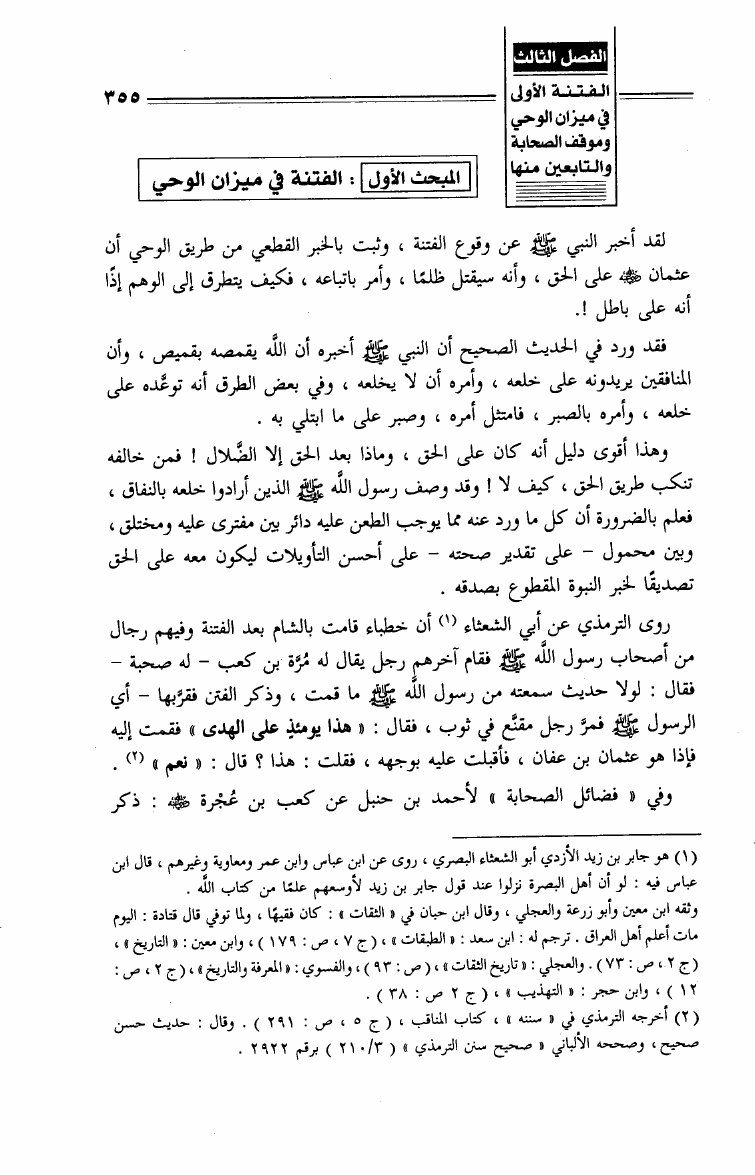 الفصل الثالث
الفتنة الأولى
في ميزان الوحي
وموقف الصحابة
والتابعين منها
٣٥٥
المبحث الأول : الفتنة في ميزان الوحي
لقد أخبر النبي ﷺ عن وقوع الفتنة ، وثبت بالخبر القطعي من طريق الوحي أن
عثمان ﵁ على الحق ، وأنه سيقتل ظلمًا ، وأمر باتباعه ، فكيف يتطرق إلى الوهم إذًا
أنه على باطل !.
فقد ورد في الحديث الصحيح أن النبي ﷺ أخبره أن اللَّه يقمصه بقميص ، وأن
المنافقين يريدونه على خلعه ، وأمره أن لا يخلعه ، وفي بعض الطرق أنه توعَّده على
خلعه ، وأمره بالصبر ، فامتثل أمره ، وصبر على ما ابتلي به .
وهذا أقوى دليل أنه كان على الحق ، وماذا بعد الحق إلا الضَّلال ! فمن خالفه
تنكب طريق الحق ، كيف لا ! وقد وصف رسول اللَّه ﷺ الذين أرادوا خلعه بالنفاق ،
فعلم بالضرورة أن كل ما ورد عنه مما يوجب الطعن عليه دائر بين مفترى عليه ومختلق ،
وبين محمول – على تقدير صحته – على أحسن التأويلات ليكون معه على الحق
تصديقًا لخبر النبوة المقطوع بصدقه .
روى الترمذي عن أبي الشعثاء (١) أن خطباء قامت بالشام بعد الفتنة وفيهم رجال
من أصحاب رسول اللَّه ﷺ فقام آخرهم رجل يقال له مُرَّة بن كعب – له صحبة –
فقال : لولا حديث سمعته من رسول اللَّه ﷺ ما قمت ، وذكر الفتن فقرَّبها – أي
الرسول ﷺ فمرَّ رجل مقنَّع في ثوب ، فقال : « هذا يومئذٍ على الهدى » فقمت إليه
فإذا هو عثمان بن عفان ، فأقبلت عليه بوجهه ، فقلت : هذا ؟ قال : « نعم » (٢) .
وفي « فضائل الصحابة » لأحمد بن حنبل عن كعب بن عُجْرة ﵁ : ذكر
(١) هو جابر بن زيد الأزدي أبو الشعثاء البصري ، روى عن ابن عباس وابن عمر ومعاوية وغيرهم ، قال ابن
عباس فيه : لو أن أهل البصرة نزلوا عند قول جابر بن زيد لأوسعهم علمًا من كتاب اللَّه .
وثقه ابن معين وأبو زرعة والعجلي ، وقال ابن حبان في « الثقات » : كان فقيهًا ، ولما توفي قال قتادة : اليوم
مات أعلم أهل العراق . ترجم له : ابن سعد : « الطبقات » ، ( ج ٧ ، ص : ١٧٩ ) ، وابن معين : « التاريخ » ،
( ج ٢ ، ص : ٧٣ ) . والعجلي : « تاريخ الثقات » ، ( ص : ٩٣ ) ، والفسوي : « المعرفة والتاريخ » ، ( ج ٢ ، ص :
١٢ ) ، وابن حجر : « التهذيب » ، ( ج ٢ ص : ٣٨ ) .
(٢) أخرجه الترمذي في « سننه » ، كتاب المناقب ، ( ج ٥ ، ص : ٢٩١ ) . وقال : حديث حسن
صحيح ، وصححه الألباني « صحيح سنن الترمذي » ( ٢١٠/٣ ) برقم ٢٩٢٢ .